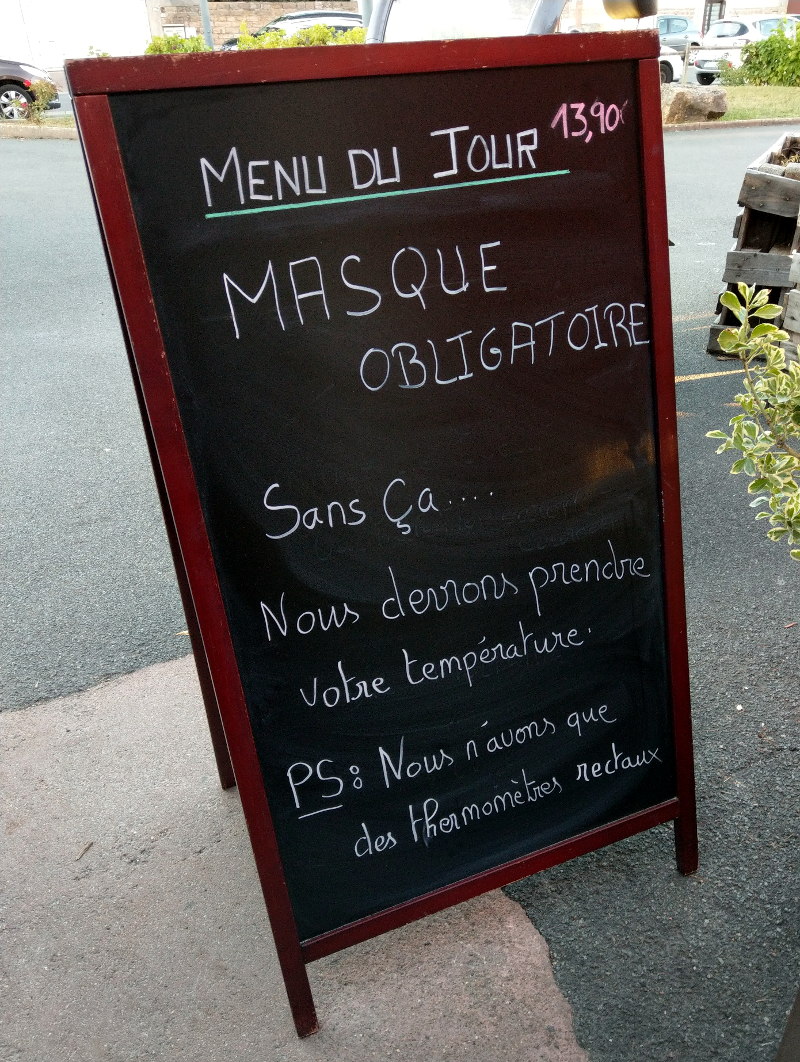 MENU DU JOUR 13,90€
MASQUE
OBLIGATOIRE
Sans Ça.....
Nous devrons prendre
votre température.
PS: Nous n'avons que
des thermomètres rectaux